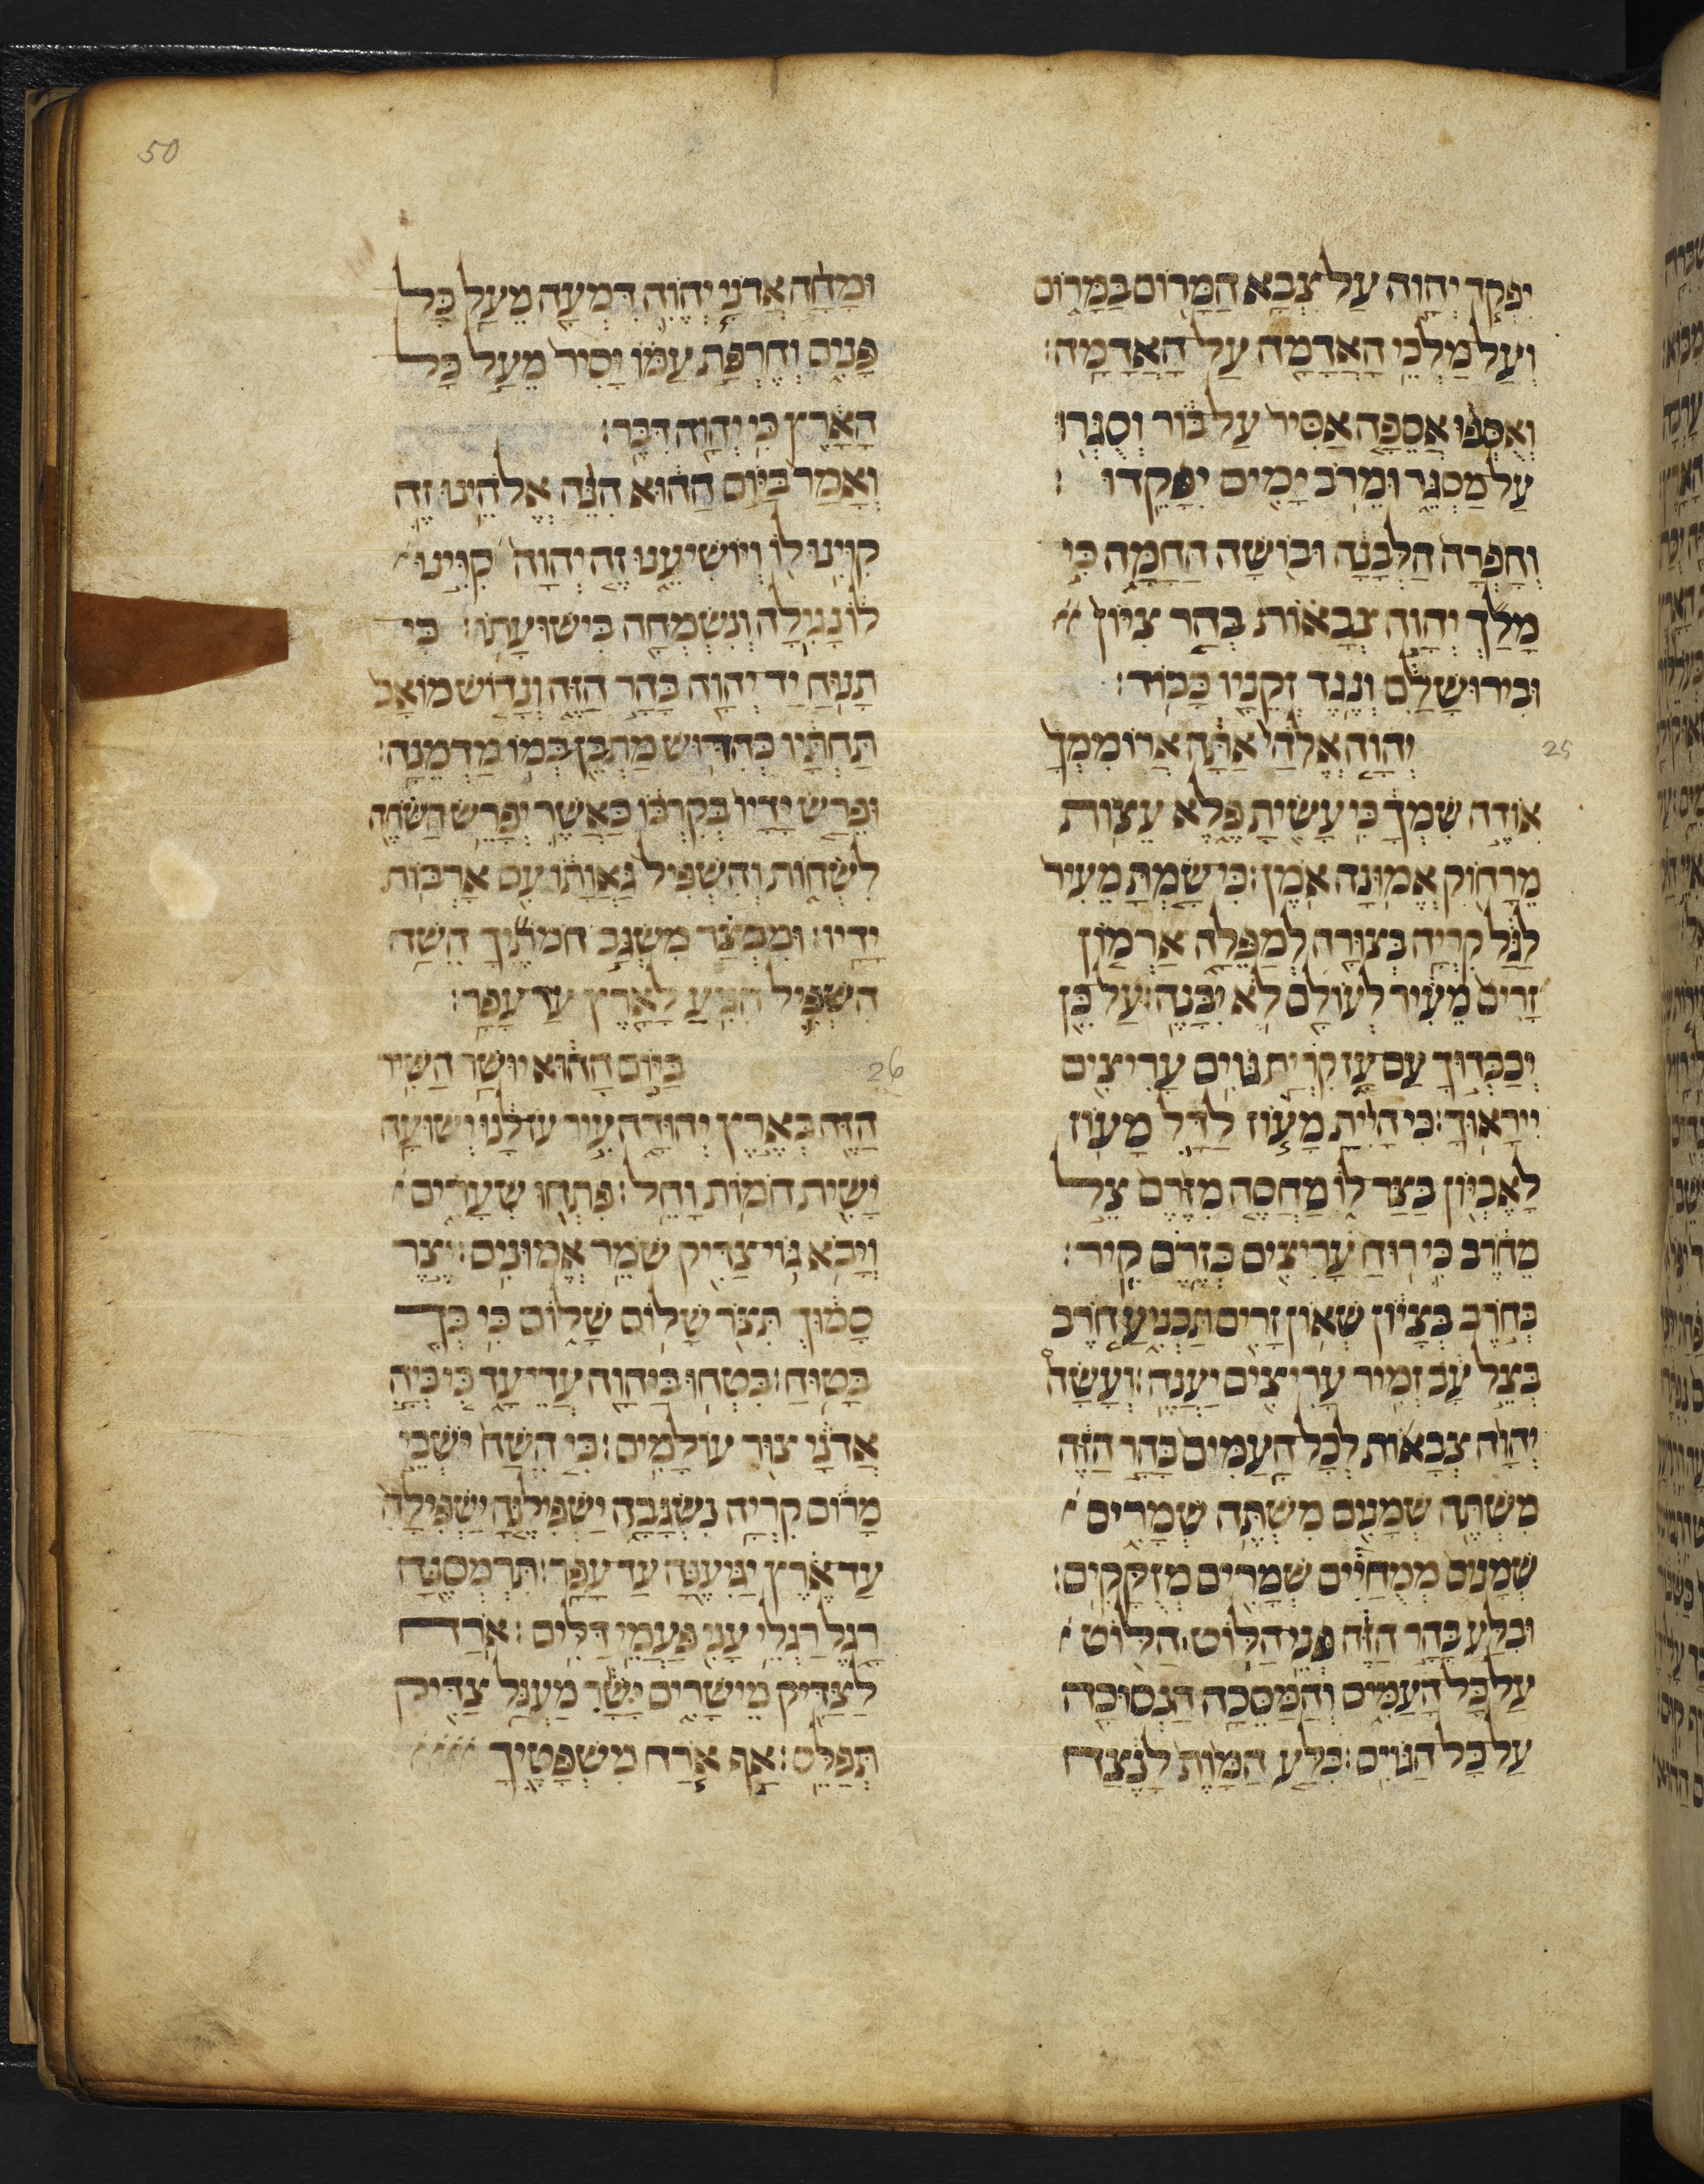 50
יִפְקֹד יְהוָה עַל צְבָא הַמָּרוֹם בַּמָּרוֹם
וְעַל מַלְכֵי הָאֲדָמָה עַל הָאֲדָמָה׃
וְאֻסְּפוּ אֲסֵפָה אַסִּיר עַל בּוֹר וְסֻגְּרוּ
עַל מַסְגֵּר וּמֵרֹב יָמִים יִפָּקֵדוּ׃
וְחָפְרָה הַלְּבָנָה וּבוֹשָׁה הַחַמָּה כִּי
מָלַךְ יְהוָה צְבָאוֹת בְּהַר צִיּוֹן
וּבִירוּשָׁלִַם וְנֶגֶד זְקֵנָיו כָּבוֹד׃
25
יְהוָה אֱלֹהַי אַתָּה אֲרוֹמִמְךָ
אוֹדֶה שִׁמְךָ כִּי עָשִׂיתָ פֶּלֶא עֵצוֹת
מֵרָחוֹק אֱמוּנָה אֹמֶן׃ כִּי שַׂמְתָּ מֵעִיר
לַגָּל קִרְיָה בְצוּרָה לְמַפֵּלָה אַרְמוֹן
זָרִים מֵעִיר לְעוֹלָם לֹא יִבָּנֶה׃ עַל כֵּן
יְכַבְּדוּךָ עַם עָז קִרְיַת גּוֹיִם עָרִיצִים
יִירָאוּךָ׃ כִּי הָיִיתָ מָעוֹז לַדָּל מָעוֹז
לָאֶבְיוֹן בַּצַּר לוֹ מַחְסֶה מִזֶּרֶם צֵל
מֵחֹרֶב כִּי רוּחַ עָרִיצִים כְּזֶרֶם קִיר׃
כְּחֹרֶב בְּצָיוֹן שְׁאוֹן זָרִים תַּכְנִיעַ חֹרֶב
בְּצֵל עָב זְמִיר עָרִיצִים יַעֲנֶה׃ וְעָשָׂה
יְהוָה צְבָאוֹת לְכָל הָעַמִּים בָּהָר הַזֶּה
מִשְׁתֵּה שְׁמָנִים מִשְׁתֵּה שְׁמָרִים
שְׁמָנִים מְמֻחָיִים שְׁמָרִים מְזֻקָּקִים׃
וּבִלַּע בָּהָר הַזֶּה פְּנֵי הַלּוֹט הַלּוֹט
עַל כָּל הָעַמִּים וְהַמַּסֵּכָה הַנְּסוּכָה
עַל כָּל הַגּוֹיִם׃ בִּלַּע הַמָּוֶת לָנֶצַח
וּמָחָה אֲדֹנָי יְהוִה דִּמְעָה מֵעַל כָּל
פָּנִים וְחֶרְפַּת עַמּוֹ יָסִיר מֵעַל כָּל
הָאָרֶץ כִּי יְהוָה דִּבֵּר׃
וְאָמַר בַּיּוֹם הַהוּא הִנֵּה אֱלֹהֵינוּ זֶה
קִוִּינוּ לוֹ וְיוֹשִׁיעֵנוּ זֶה יְהוָה קִוִּינוּ
לוֹ נָגִילָה וְנִשְׂמְחָה בִּישׁוּעָתוֹ׃ כִּי
תָנוּחַ יַד יְהוָה בָּהָר הַזֶּה וְנָדוֹשׁ מוֹאָב
תַּחְתָּיו כְּהִדּוּשׁ מַתְבֵּן בְּמוֹ מַדְמֵנָה׃
וּפֵרַשׂ יָדָיו בְּקִרְבּוֹ כַּאֲשֶׁר יְפָרֵשׂ הַשֹּׂחֶה
לִשְׂחוֹת וְהִשְׁפִּיל גַּאֲוָתוֹ עִם אָרְבּוֹת
יָדָיו׃ וּמִבְצַר מִשְׂגַּב חֹמֹתֶיךָ הֵשַׁח
הִשְׁפִּיל הִגִּיעַ לָאָרֶץ עַד עָפָר׃
26
בַּיּוֹם הַהוּא יוּשַׁר הַשִּׁיר
הַזֶּה בְּאֶרֶץ יְהוּדָה עִיר עָז לָנוּ יְשׁוּעָה
יָשִׁית חֹמוֹת וָחֵל׃ פִּתְחוּ שְׁעָרִים
וְיָבֹא גוֹי צַדִּיק שֹׁמֵר אֱמוּנִים׃ יֵצֶר
סָמוּךְ תִּצֹּר שָׁלוֹם שָׁלוֹם כִּי בְךָ
בָּטוּחַ׃ בִּטְחוּ בַיהוָה עֲדֵי עַד כִּי בְּיָהּ
אֲדֹנָי צוּר עוֹלָמִים׃ כִּי הֵשַׁח יֹשְׁבֵי
מָרוֹם קִרְיָה נִשְׂגָּבָה יַשְׁפִּילֶנָּה יַשְׁפִּילָהּ
עַד אֶרֶץ יַגִּיעֶנָּה עַד עָפָר׃ תִּרְמְסֶנָּה
רָגֶל רַגְלֵי עָנִי פַּעֲמֵי דַלִּים׃ אֹרַח
לַצַּדִּיק מֵישָׁרִים יָשָׁר מַעְגַּל צַדִּיק
תְּפַלֵּס׃ אַף אֹרַח מִשְׁפָּטֶיךָ